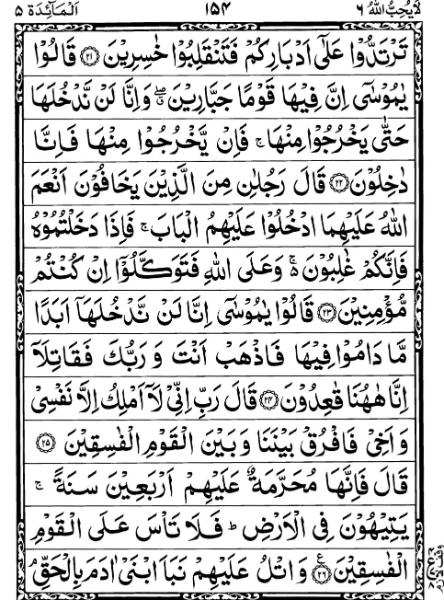 لَا يُحِبُّ اللهُ ٦ ١٥٤ اَلْمَآئِدَة ٥
تَرْتَدُّوْا عَلٰٓى اَدْبَارِكُمْ فَتَنْقَلِبُوْا خٰسِرِيْنَ ﴿٢١﴾ قَالُوْا
يٰمُوْسٰٓى اِنَّ فِيْهَا قَوْمًا جَبَّارِيْنَ ۖ وَاِنَّا لَنْ نَّدْخُلَهَا
حَتّٰى يَخْرُجُوْا مِنْهَا ۚ فَاِنْ يَّخْرُجُوْا مِنْهَا فَاِنَّا
دٰخِلُوْنَ ﴿٢٢﴾ قَالَ رَجُلٰنِ مِنَ الَّذِيْنَ يَخَافُوْنَ اَنْعَمَ
اللهُ عَلَيْهِمَا ادْخُلُوْا عَلَيْهِمُ الْبَابَ ۚ فَاِذَا دَخَلْتُمُوْهُ
فَاِنَّكُمْ غٰلِبُوْنَ ۚ وَعَلَى اللهِ فَتَوَكَّلُوْٓا اِنْ كُنْتُمْ
مُّؤْمِنِيْنَ ﴿٢٣﴾ قَالُوْا يٰمُوْسٰٓى اِنَّا لَنْ نَّدْخُلَهَآ اَبَدًا
مَّا دَامُوْا فِيْهَا فَاذْهَبْ اَنْتَ وَرَبُّكَ فَقَاتِلَآ
اِنَّا هٰهُنَا قٰعِدُوْنَ ﴿٢٤﴾ قَالَ رَبِّ اِنِّيْ لَآ اَمْلِكُ اِلَّا نَفْسِيْ
وَاَخِيْ فَافْرُقْ بَيْنَنَا وَبَيْنَ الْقَوْمِ الْفٰسِقِيْنَ ﴿٢٥﴾
قَالَ فَاِنَّهَا مُحَرَّمَةٌ عَلَيْهِمْ اَرْبَعِيْنَ سَنَةً ۚ
يَتِيْهُوْنَ فِى الْاَرْضِ ؕ فَلَا تَاْسَ عَلَى الْقَوْمِ
الْفٰسِقِيْنَ ﴿٢٦﴾ ع وَاتْلُ عَلَيْهِمْ نَبَاَ ابْنَيْ اٰدَمَ بِالْحَقِّ ۘ